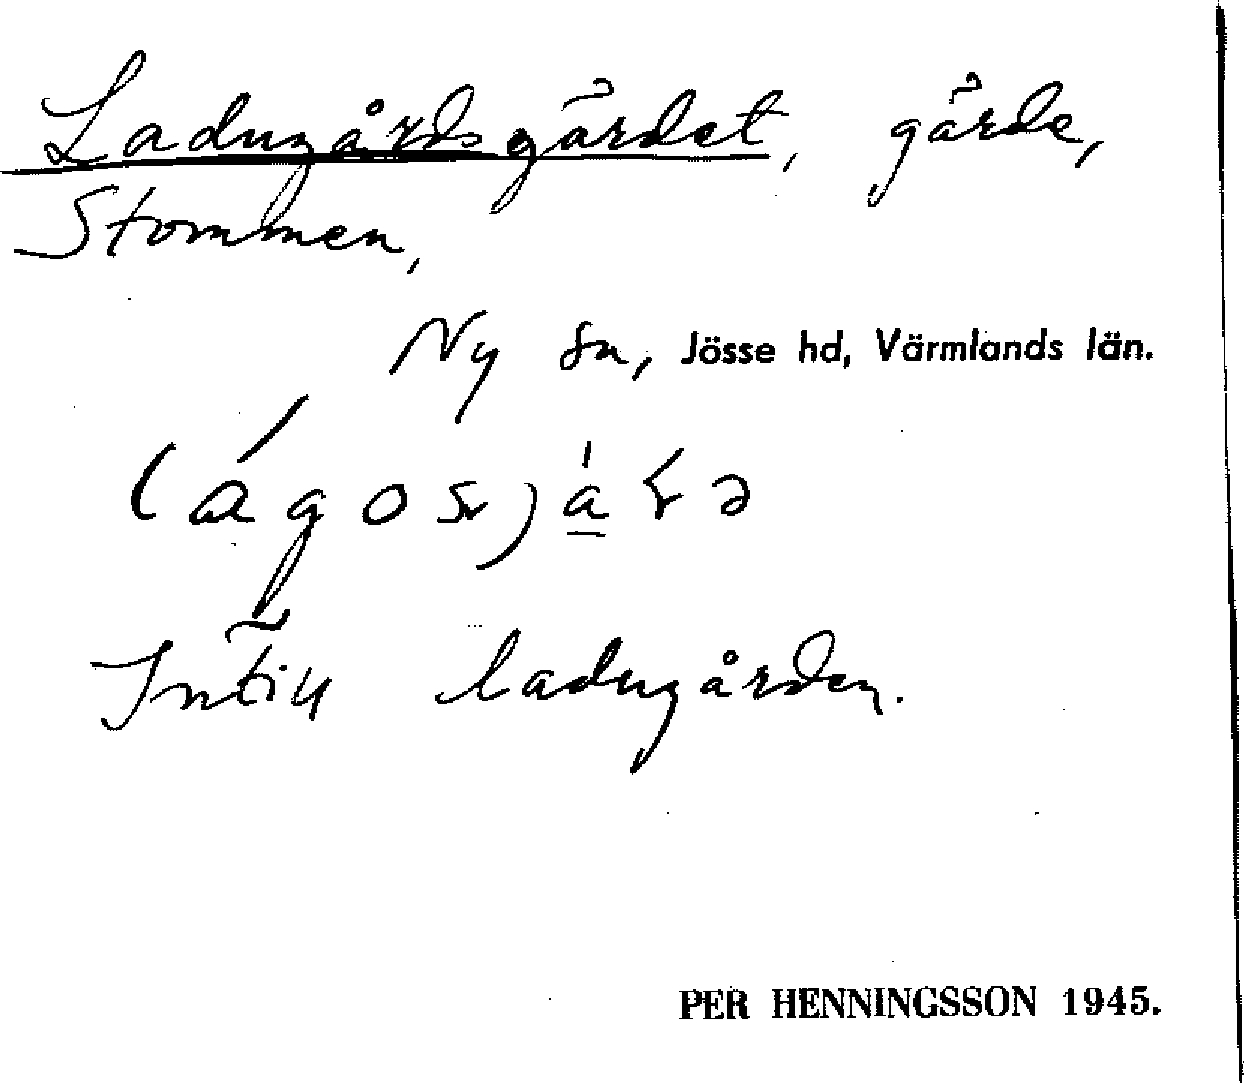 Ladugårdsgärdet, gärde,
Stommen,
Ny sn, Jösse hd, Värmlands län.
Intill ladugården.
PER HENNINGSSON 1945.